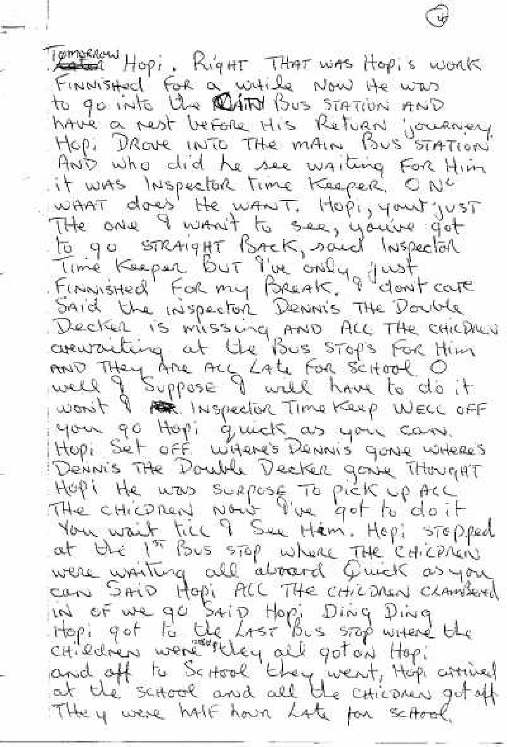 4
TOMORROW
Hopi. RIGHT THAT WAS Hopi's WORK
FINNISHED FOR A WHILE NOW HE WAS
to go into the BUS STATION AND
HAVE A REST BEFORE His RETURN journey.
Hopi DROVE INTO THE MAIN BUS STATION
AND who did he see WAITING FOR Him
it WAS INSPECTOR Time KEEPER. O NO
WHAT does HE WANT. Hopi, your just
THE one I WANT to see, you've got
to go STRAIGHT BACK, said INSPECTOR
Time KEEPER BUT I've only just
FINNISHED FOR my BREAK. I dont care
SAID the INSPECTOR DENNIS THE DOUBLE
DECKER is missing AND ALL THE CHILDREN
are waiting at the BUS STOPS FOR Him
AND THEY ARE ALL LATE FOR SCHOOL O
well I SUPPOSE I will HAVE to do it
wont I INSPECTOR TIME KEEP WELL OFF
you go Hopi quick as you CAN.
Hopi SET OFF. WHERE'S DENNIS GONE WHERE'S
DENNIS THE DOUBLE DECKER gone THOUGHT
Hopi HE WAS SURPOSE TO PICK UP ALL
THE CHILDREN NOW I've got to do it
You wait till I SEE HIM. Hopi STOPPED
at the 1ST BUS STOP WHERE THE CHILDREN
were WAITING all aboard Quick as you
can SAID Hopi ALL THE CHILDREN CLAMBERED
IN OF we go SAID Hopi DING DING
Hopi got to the LAST BUS STOP where the
CHILDREN were they all got on Hopi
and off to SCHOOL they went, Hopi arrived
at the SCHOOL and all the CHILDREN got off
THEY were HALF hour LATE for SCHOOL.